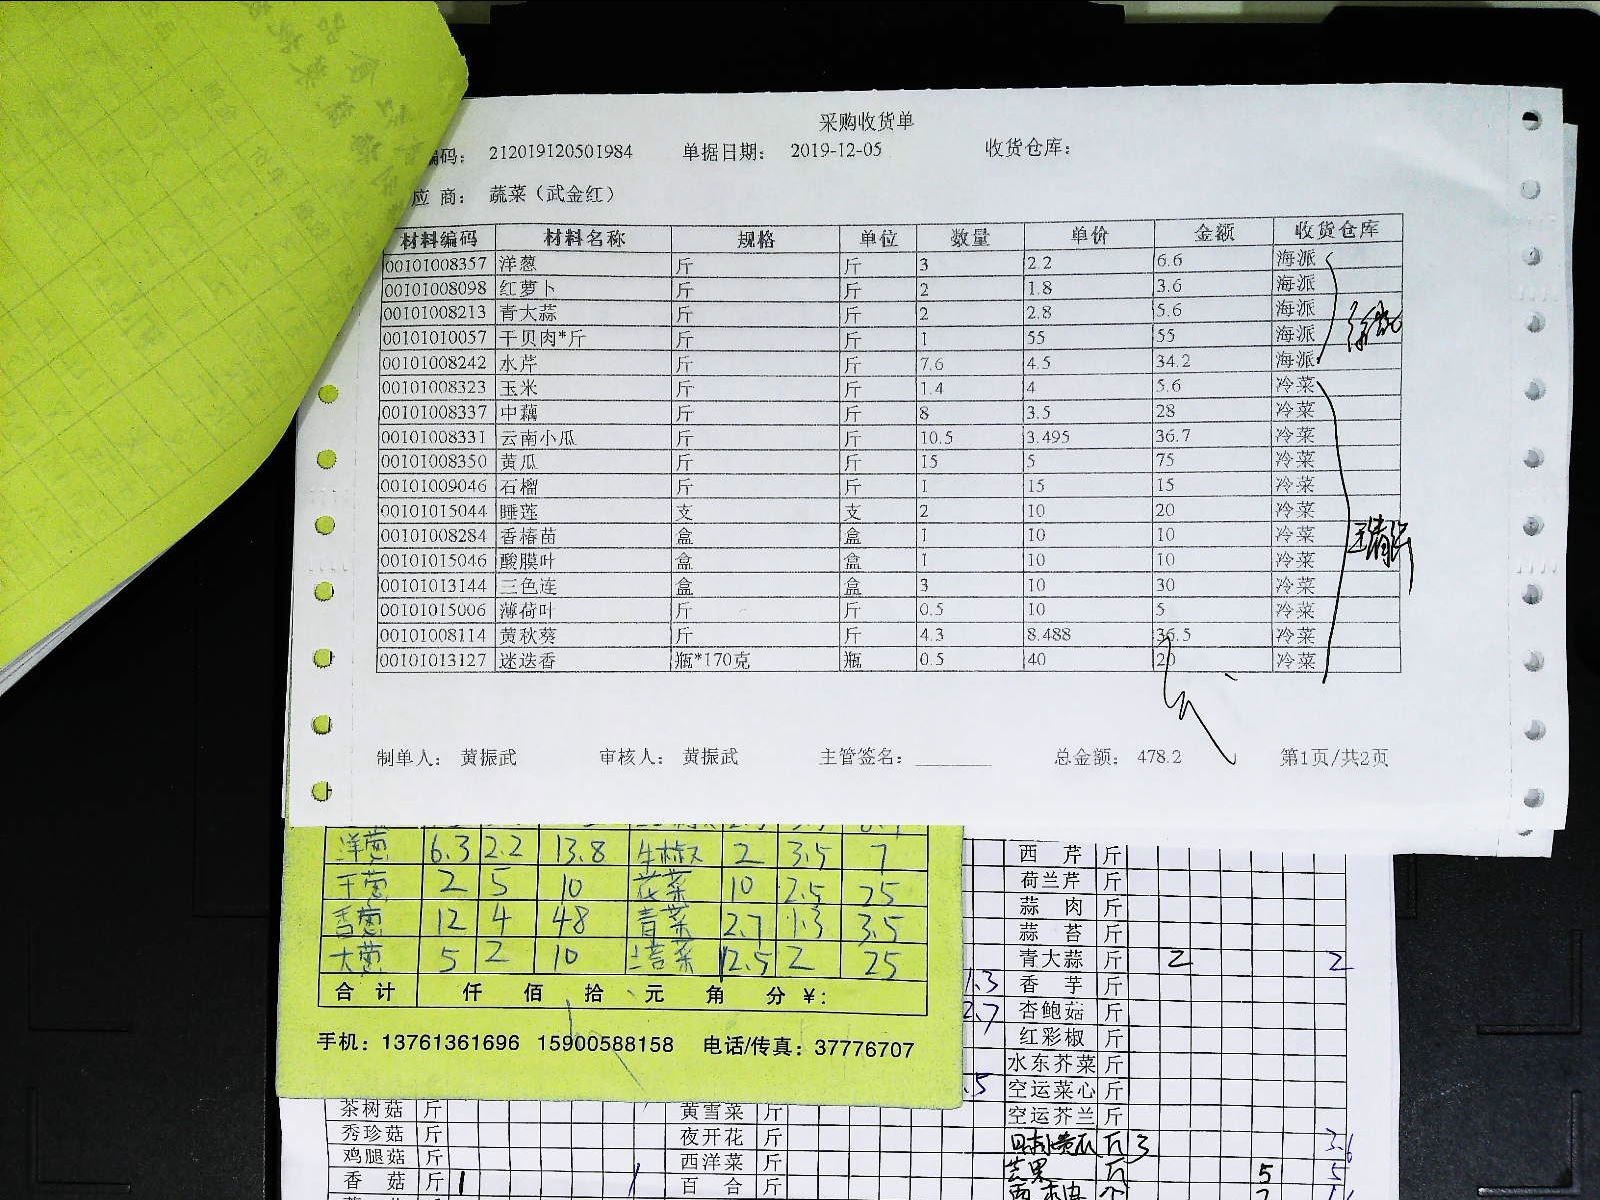 采购收货单
编码： 212019120501984 单据日期： 2019-12-05 收货仓库：
应 商： 蔬菜（武金红）
材料编码 材料名称 规格 单位 数量 单价 金额 收货仓库
00101008357 洋葱 斤 斤 3 2.2 6.6 海派
00101008098 红萝卜 斤 斤 2 1.8 3.6 海派
00101008213 青大蒜 斤 斤 2 2.8 5.6 海派
00101010057 干贝肉*斤 斤 斤 1 55 55 海派
00101008242 水芹 斤 斤 7.6 4.5 34.2 海派
00101008323 玉米 斤 斤 1.4 4 5.6 冷菜
00101008337 中藕 斤 斤 8 3.5 28 冷菜
00101008331 云南小瓜 斤 斤 10.5 3.495 36.7 冷菜
00101008350 黄瓜 斤 斤 15 5 75 冷菜
00101009046 石榴 斤 斤 1 15 15 冷菜
00101015044 睡莲 支 支 2 10 20 冷菜
00101008284 香椿苗 盒 盒 1 10 10 冷菜
00101015046 酸膜叶 盒 盒 1 10 10 冷菜
00101013144 三色连 盒 盒 3 10 30 冷菜
00101015006 薄荷叶 斤 斤 0.5 10 5 冷菜
00101008114 黄秋葵 斤 斤 4.3 8.488 36.5 冷菜
00101013127 迷迭香 瓶*170克 瓶 0.5 40 20 冷菜
制单人： 黄振武 审核人： 黄振武 主管签名： 总金额： 478.2 第1页/共2页
洋葱 6.3 2.2 13.8 牛椒 2 3.5 7
干葱 2 5 10 花菜 10 2.5 25
香葱 12 4 48 青菜 2.7 1.3 3.5
大葱 5 2 10 12.5 2 25
合 计 仟 佰 拾 元 角 分 ¥:
手机：13761361696 15900588158 电话/传真：37776707
西 芹 斤
荷兰芹 斤
蒜 肉 斤
蒜 苔 斤
青大蒜 斤 2 2
1.3 香 芋 斤
2.7 杏鲍菇 斤
红彩椒 斤
水东芥菜 斤
.5 空运菜心 斤
茶树菇 斤 黄雪菜 斤 空运芥兰 斤
秀珍菇 斤 夜开花 斤 日本黄瓜 斤 3 3.6
鸡腿菇 斤 西洋菜 斤 芒果 斤 5 5
香 菇 斤 1 1 百 合 斤